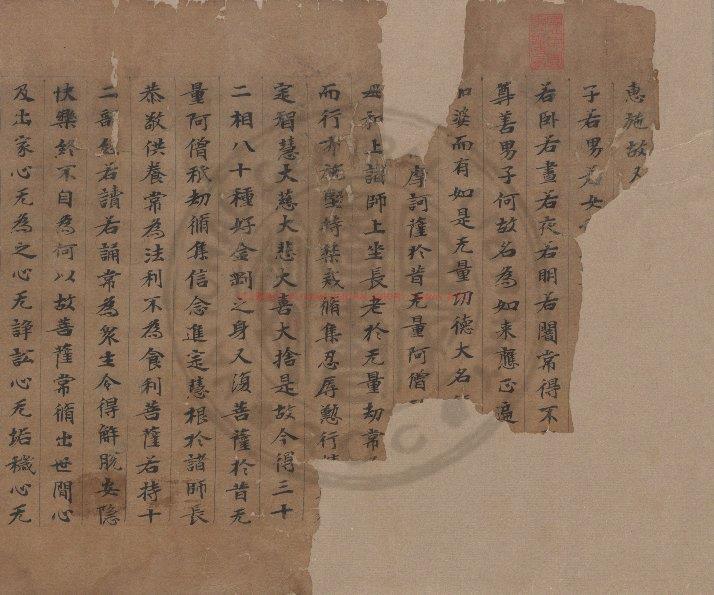 惠施故又
子若男若女
若卧若晝若夜若明若闇常得不
尊善男子何故名為如来應正遍
如婆而有如是无量功德大名
摩訶薩於昔无量阿僧
毋和上諸師上坐長老於无量劫常
而行布施堅持禁戒脩集忍辱懃行
定智慧大慈大悲大喜大捨是故今得三十
二相八十種好金剛之身又復菩薩於昔无
量阿僧秖劫脩集信念進定慧根於諸師長
恭敬供養常為法利不為食利菩薩若持十
二部經若讀若誦常為衆生令得解脫安隱
快樂終不自為何以故菩薩常脩出世間心
及出家心无為之心无諍訟心无垢穢心无